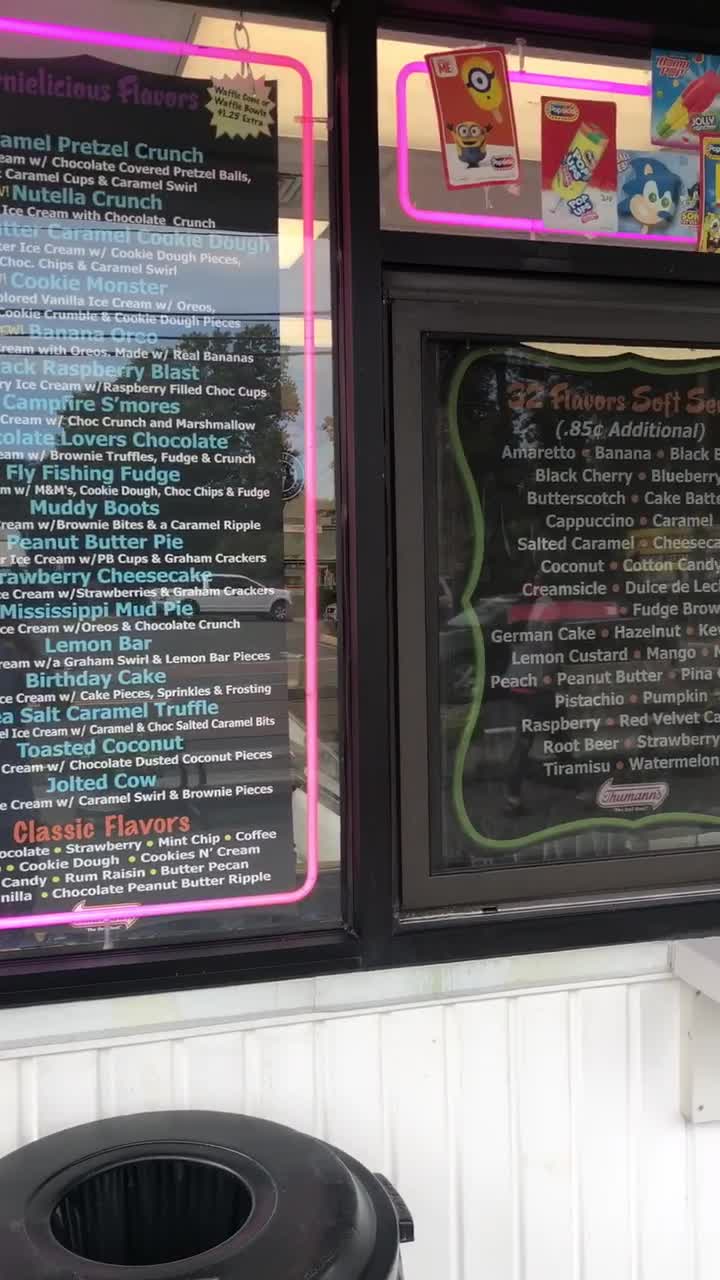 Flavors
Waffle Cone or
Waffle Bowls
$1.25 Extra
Pretzel Crunch
w/ Chocolate Covered Pretzel Balls,
Caramel Cups & Caramel Swirl
Nutella Crunch
Ice Cream with Chocolate Crunch
Caramel Cookie Dough
Ice Cream w/ Cookie Dough Pieces,
Choc. Chips & Caramel Swirl
Cookie Monster
Vanilla Ice Cream w/ Oreos,
Cookie Crumble & Cookie Dough Pieces
Banana Oreo
with Oreos. Made w/ Real Bananas
Raspberry Blast
Ice Cream w/Raspberry Filled Choc Cups
Campfire S'mores
Cream w/ Choc Crunch and Marshmallow
Lovers Chocolate
w/ Brownie Truffles, Fudge & Crunch
Fly Fishing Fudge
w/ M&M's, Cookie Dough, Choc Chips & Fudge
Muddy Boots
w/Brownie Bites & a Caramel Ripple
Peanut Butter Pie
Ice Cream w/PB Cups & Graham Crackers
Cheesecake
Cream w/Strawberries & Graham Crackers
Mississippi Mud Pie
Ice Cream w/Oreos & Chocolate Crunch
Lemon Bar
w/a Graham Swirl & Lemon Bar Pieces
Birthday Cake
Cream w/ Cake Pieces, Sprinkles & Frosting
Salt Caramel Truffle
Ice Cream w/ Caramel & Choc Salted Caramel Bits
Toasted Coconut
Cream w/ Chocolate Dusted Coconut Pieces
Jolted Cow
Cream w/ Caramel Swirl & Brownie Pieces
Classic Flavors
• Strawberry • Mint Chip • Coffee
• Cookie Dough • Cookies N' Cream
Candy • Rum Raisin • Butter Pecan
• Chocolate Peanut Butter Ripple
ME
Popsicle
Popsicle
POP UPS
JOLLY
32 Flavors Soft
(.85¢ Additional)
Amaretto • Banana • Black
Black Cherry • Blueberry
Butterscotch • Cake
Cappuccino • Caramel
Salted Caramel •
Coconut • Cotton Candy
Creamsicle • Dulce de
• Fudge
German Cake • Hazelnut •
Lemon Custard • Mango •
Peach • Peanut Butter • Pina
Pistachio • Pumpkin
Raspberry • Red Velvet
Root Beer • Strawberry
Tiramisu • Watermelon
Thumann's